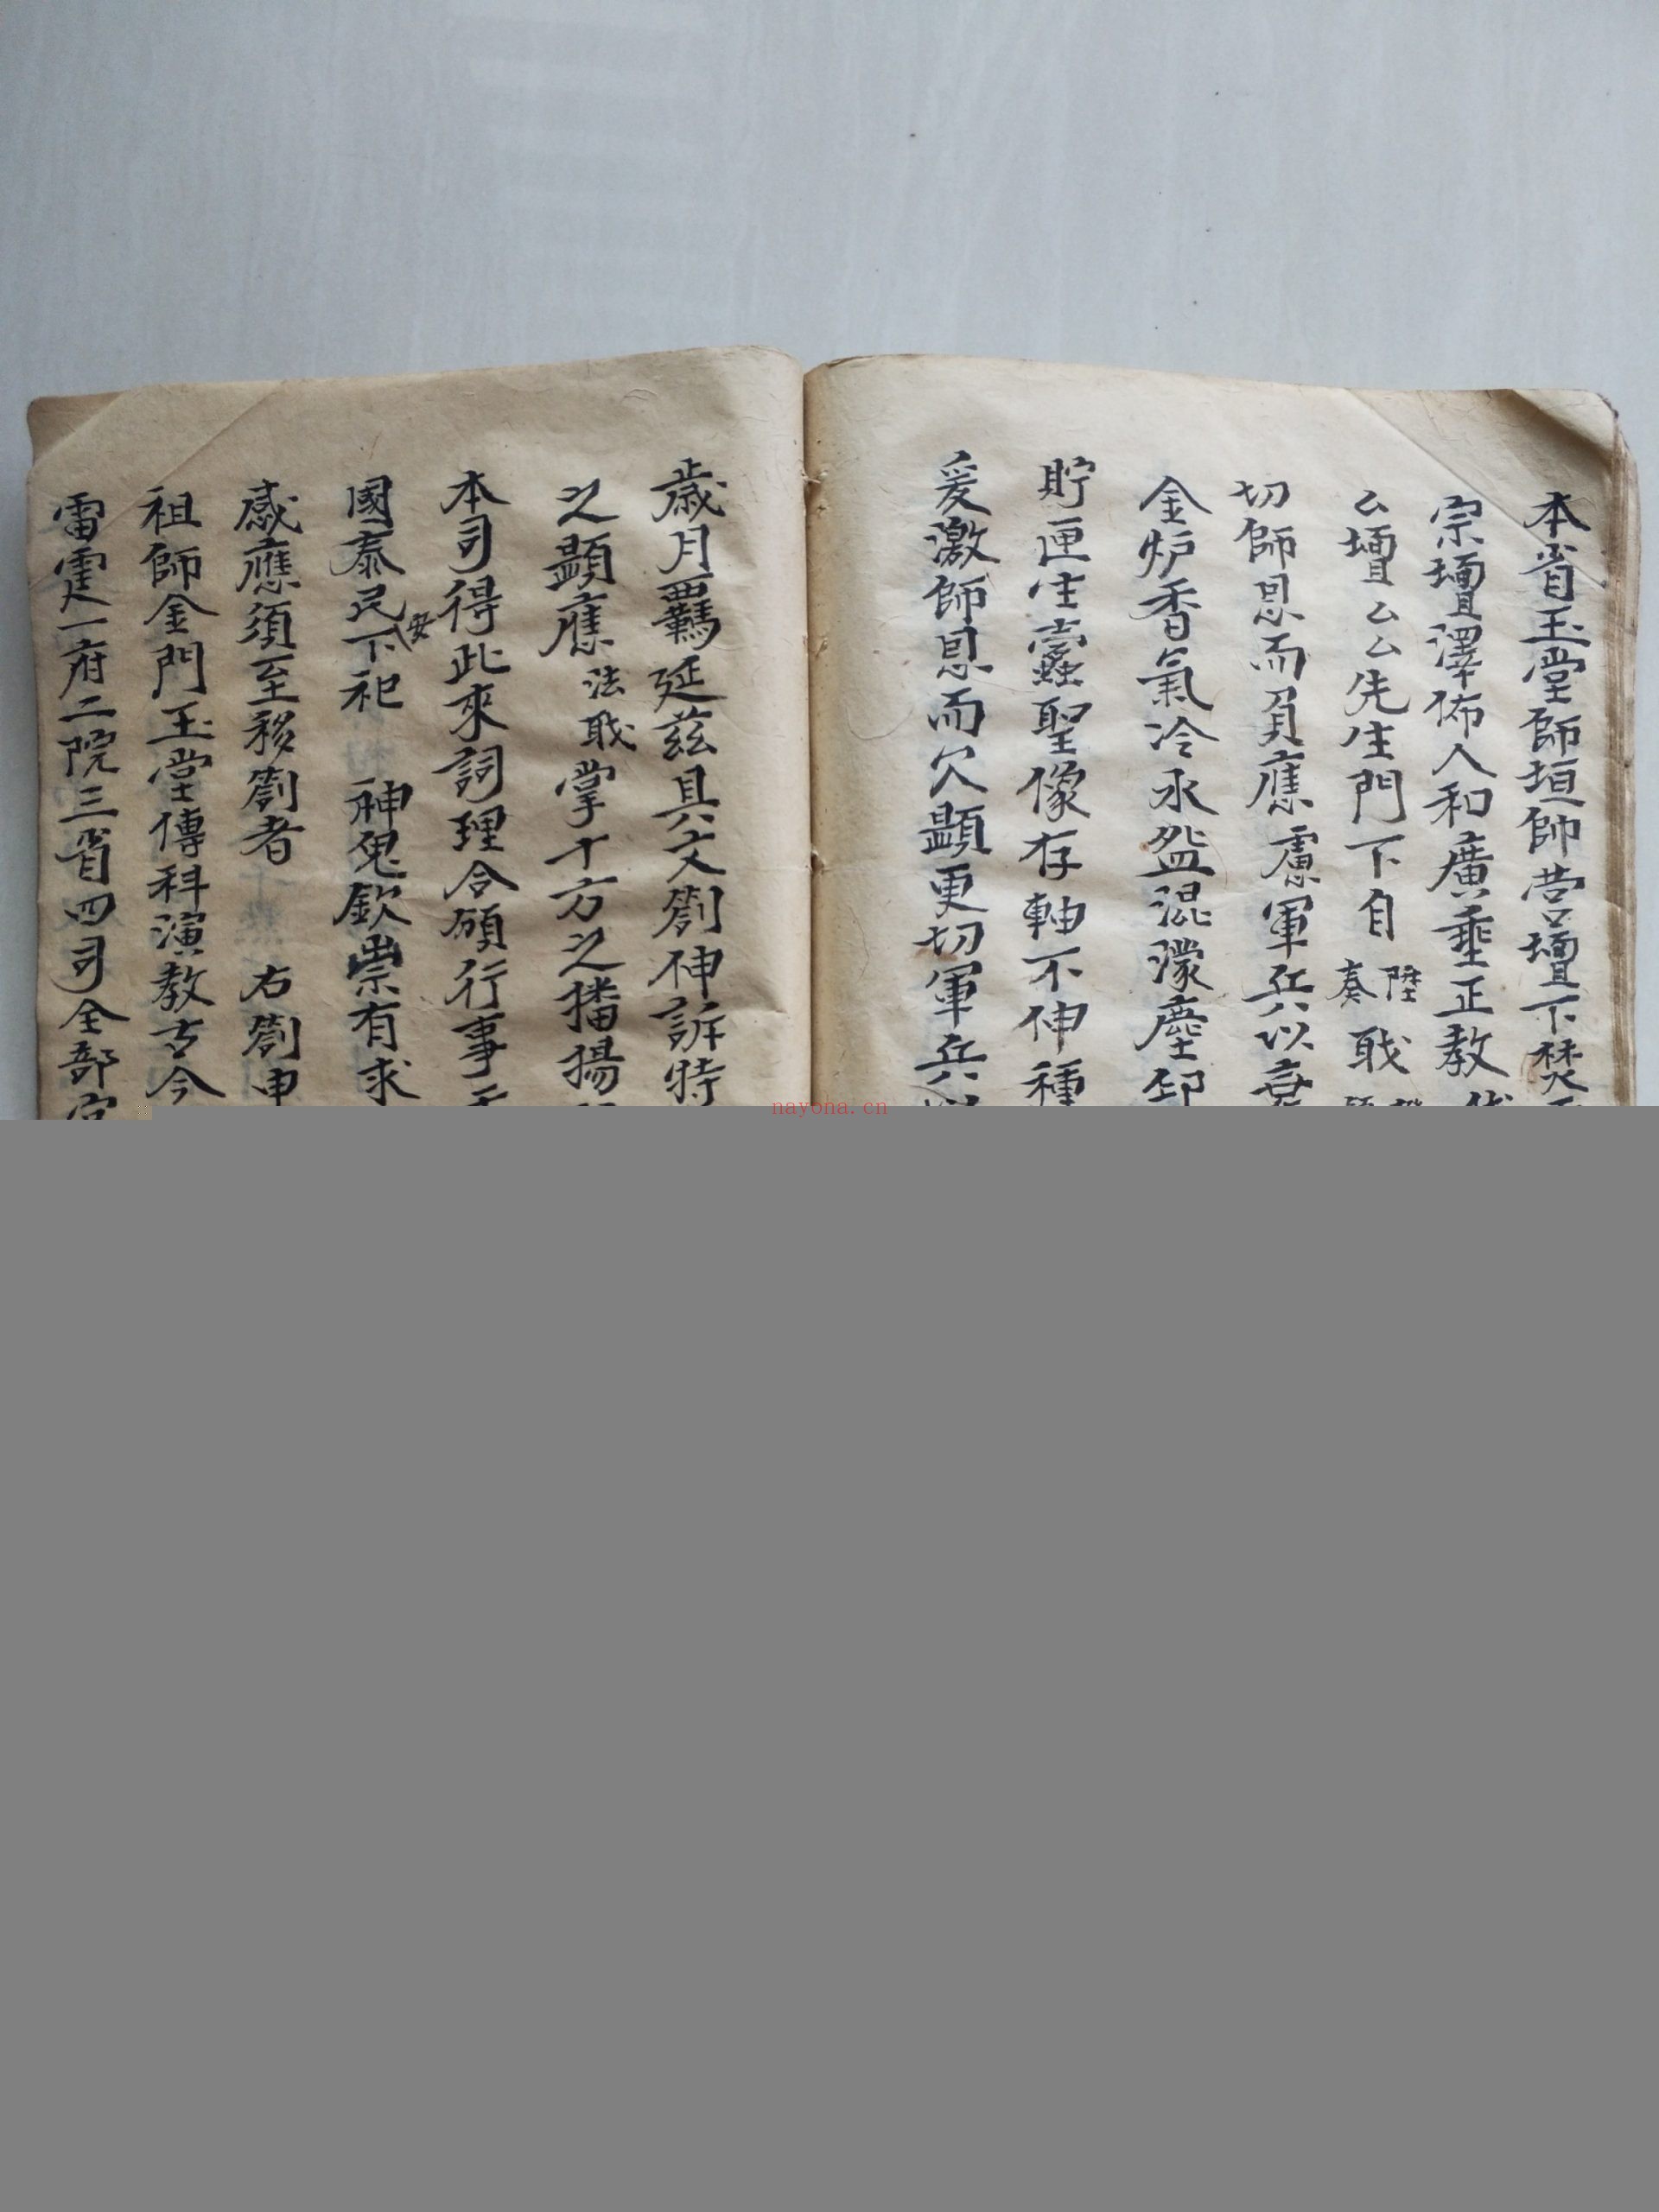 本省玉堂師垣帥营壇下焚
宗壇澤佈人和廣垂正教
厶壇厶厶先生門下自 陞奏 戝
切師恩而負應慮軍兵以
金炉香氣冷水盌混濛塵
貯匣生蠹聖像存軸不伸種
爰激師恩而欠顯更切軍兵
歲月覊延兹具文劄神訴特
之顯應 法戝掌十方之播揚
本司得此來詞理合頒行事
國泰民安下祀 神鬼欽崇有求
感應須至移劄者 右劄申
祖師金門玉堂傳科演教古今
雷霆一府二院三省四司全部
nayona.cn